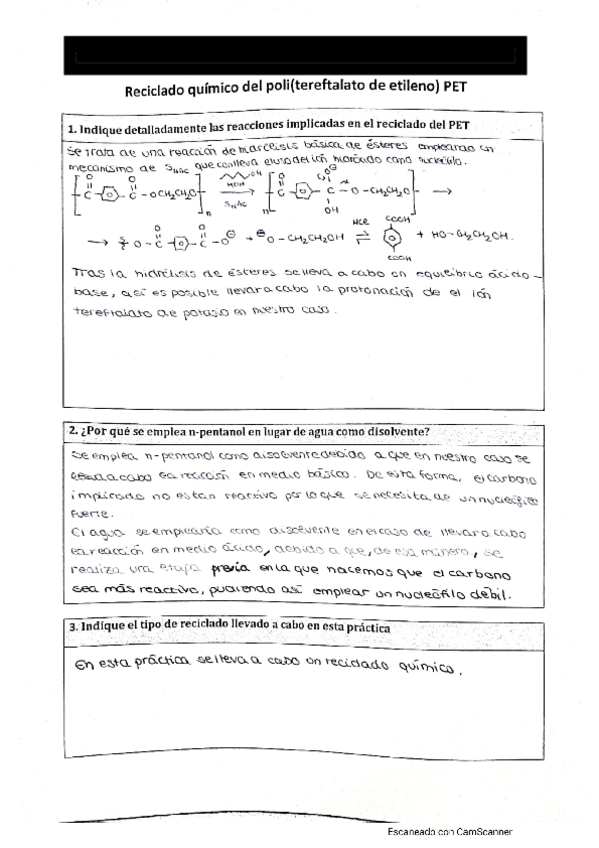 Reciclado químico del poli(tereftalato de etileno) PET
1. Indique detalladamente las reacciones implicadas en el reciclado del PET
Se trata de una reacción de hidrólisis básica de ésteres empleando un
mecanismo de SNAC que conlleva el uso del ión hidróxido como nucleófilo.
O O
C C - OCH2CH2O n
OH
KOH
SNAC
O
C C - O - CH2CH2O n
OH
O - C C - O⊖ + ⊖O - CH2CH2OH ⇌ HCl COOH COOH + HO-CH2CH2OH.
Tras la hidrólisis de ésteres se lleva a cabo un equilibrio ácido -
base, así es posible llevar a cabo la protonación de el ión
tereftalato de potasio en nuestro caso.
2. ¿Por qué se emplea n-pentanol en lugar de agua como disolvente?
Se emplea n-pentanol como disolvente debido a que en nuestro caso se
lleva a cabo la reacción en medio básico. De esta forma, el carbono
implicado no es tan reactivo por lo que se necesita de un nucleófilo
fuerte.
El agua se emplearía como disolvente en el caso de llevar a cabo
la reacción en medio ácido, debido a que, de esa manera, se
realiza una etapa previa en la que hacemos que el carbono
sea más reactivo, pudiendo así emplear un nucleófilo débil.
3. Indique el tipo de reciclado llevado a cabo en esta práctica
En esta práctica se lleva a cabo un reciclado químico.
Escaneado con CamScanner